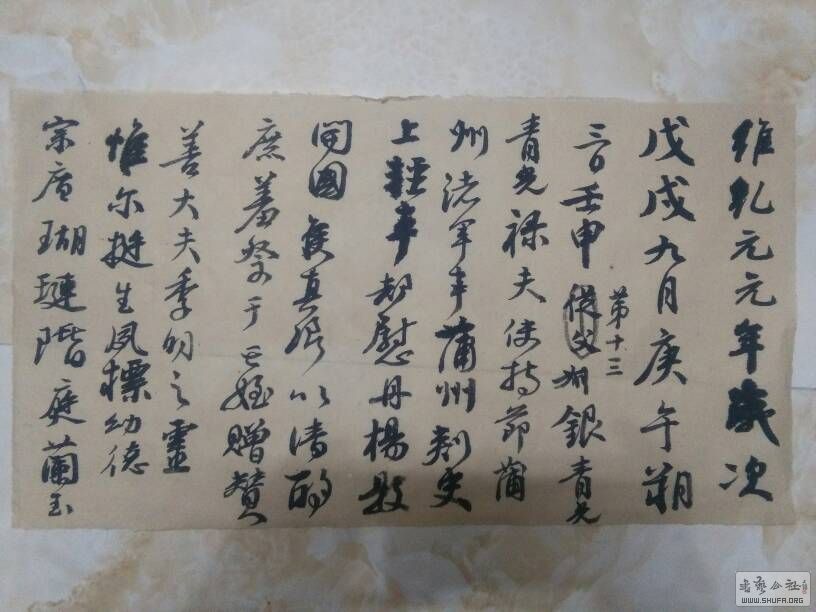 維乹元元年歲次
戊戌九月庚午朔
三日壬申從父銀青光
第十三
青光禄夫使持節蒲
州諸軍事蒲州刺史
上輕車都慰丹楊縣
開國侯真卿以清酌
庶羞祭于亡姪贈贊
善大夫季明之靈
惟尔挺生夙標幼德
宗廟瑚璉階庭蘭玉
书艺公社
WWW.SHUFA.ORG